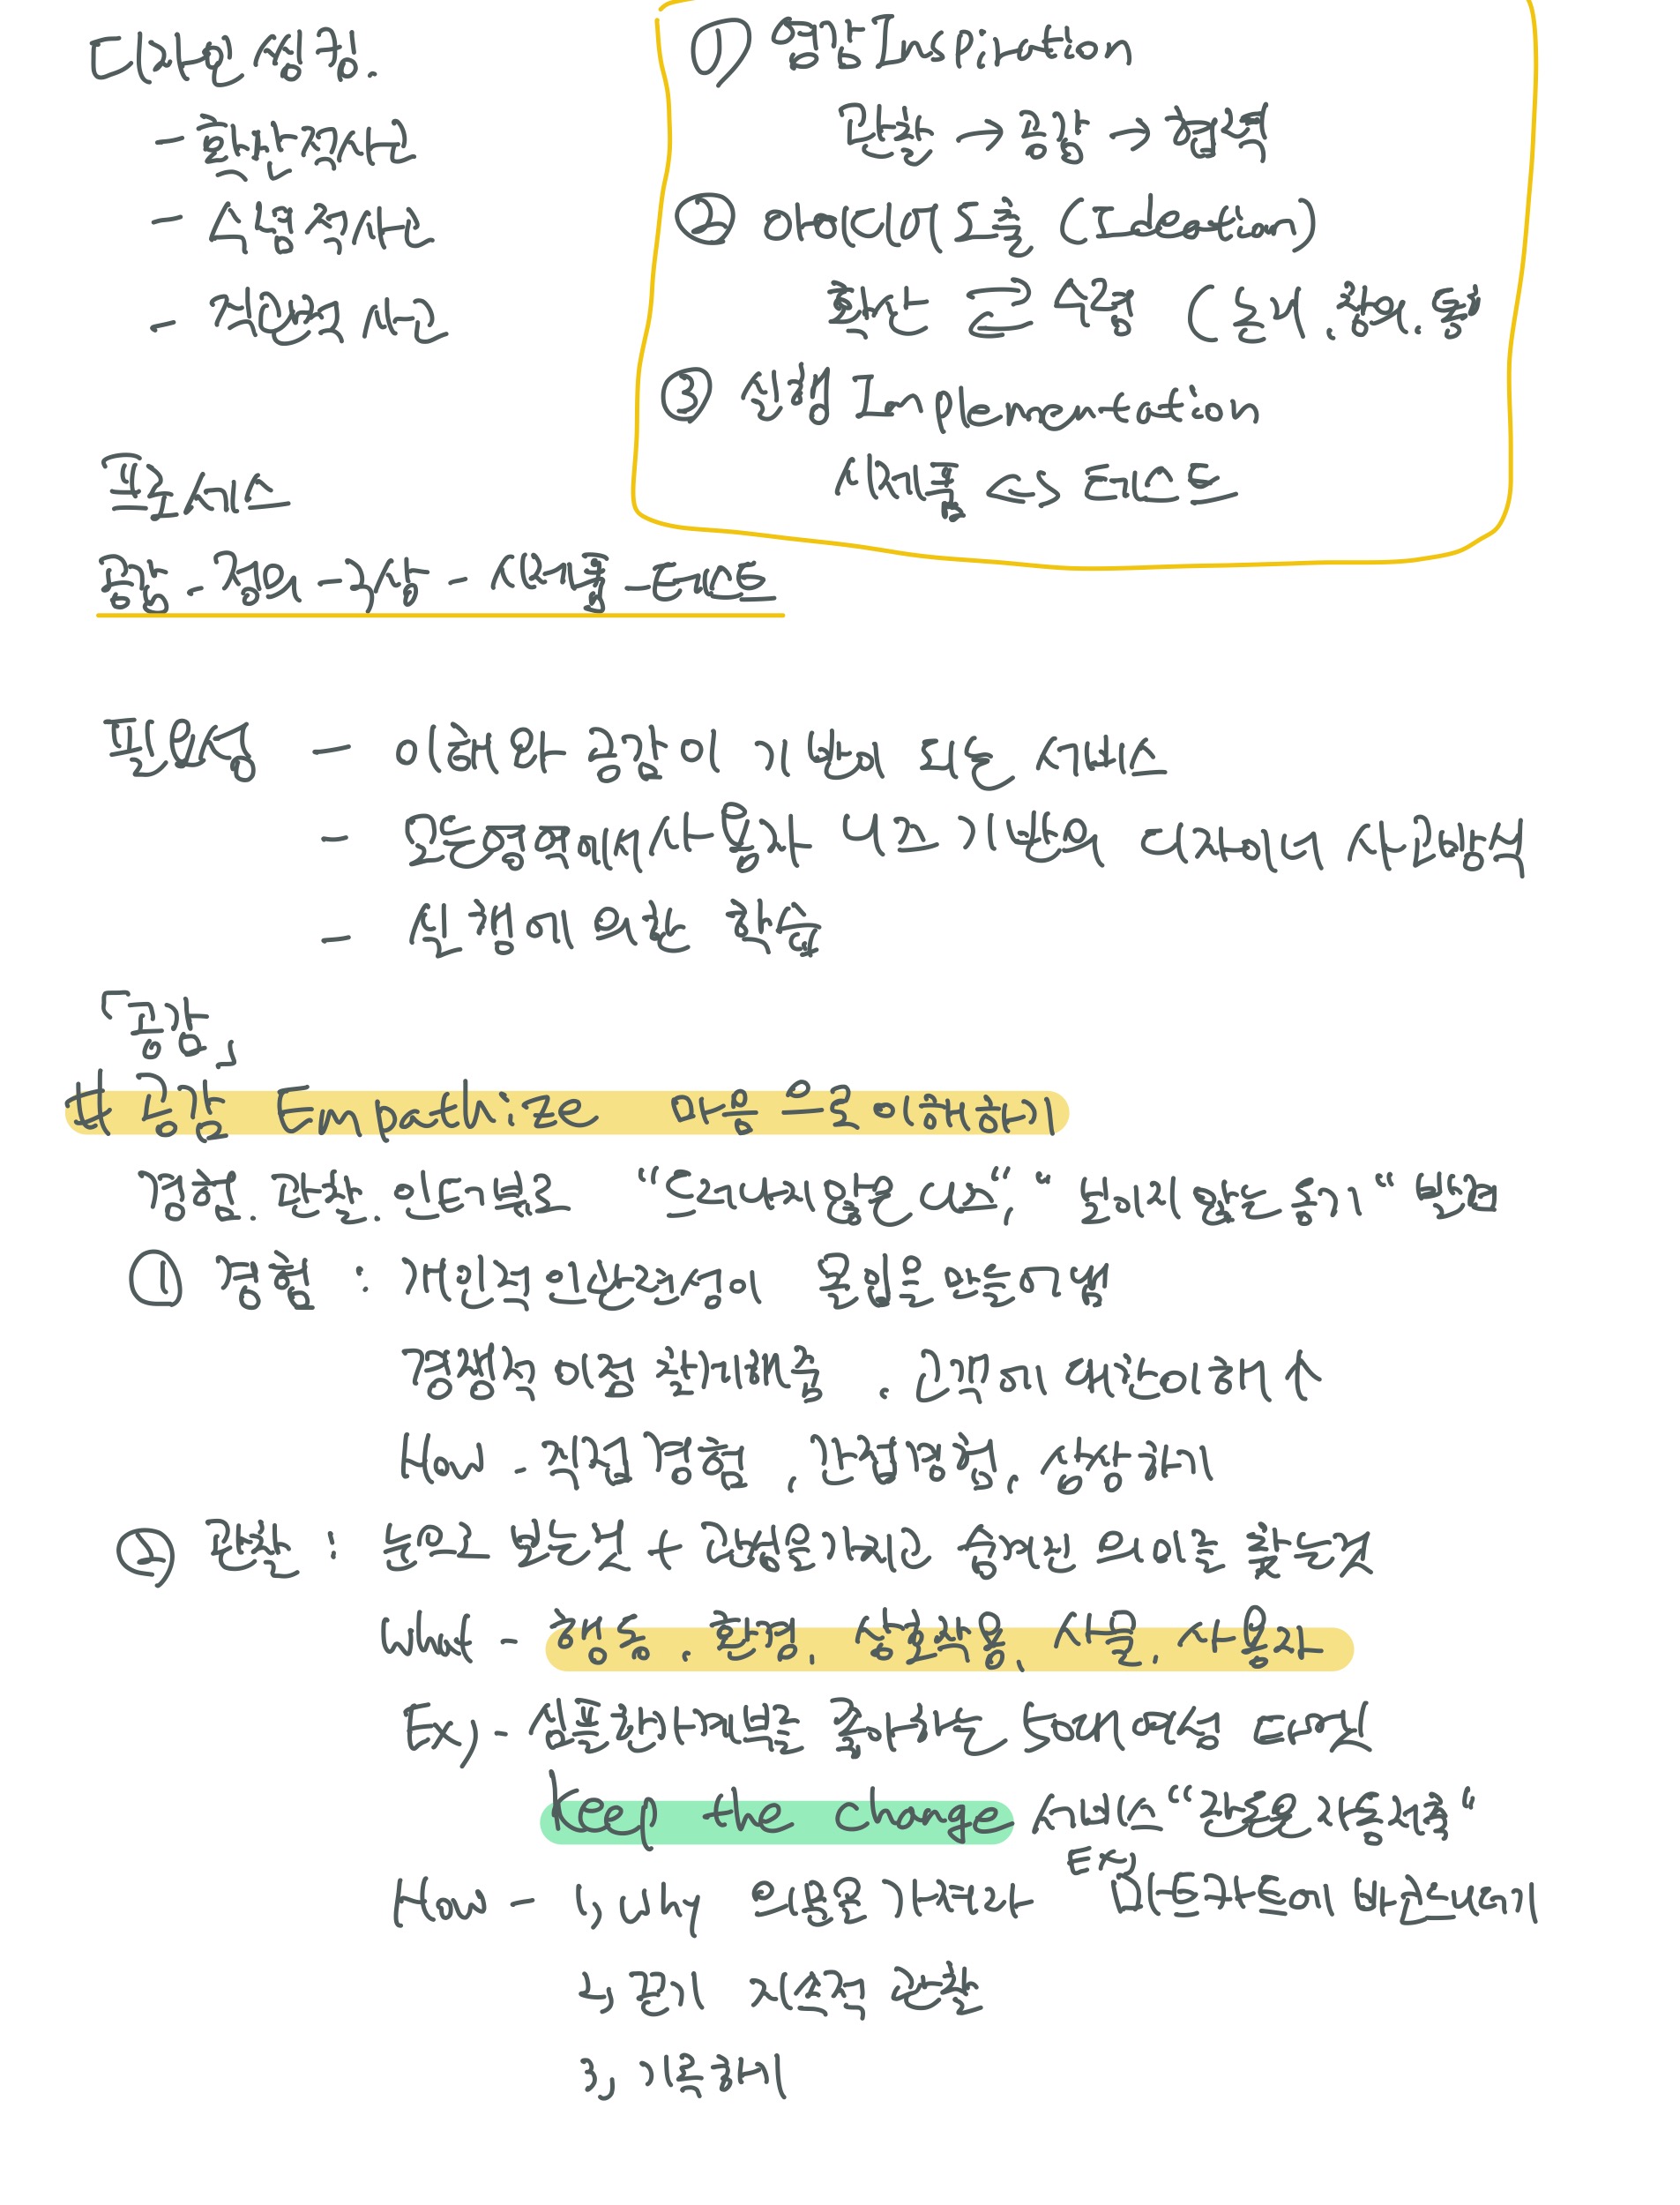 디자인 씽킹.
- 확산적사고
- 수렴적사고
- 직관적 사고
① 영감 Inspiration
관찰 → 공감 → 협력
② 아이디어 도출 (Ideation)
확산 수렴 (논리.
③ 실행 Implementation
시제품 <=> 테스트
프로세스
공감 - 정의 - 구상 - 시제품 - 테스트
필요성 - 이해와 공감이 기반이 되는 서비스
- 모든영역에서 사용자 니즈 기반의 디자이너 사고방식
- 실험에 의한 학습
「공감」
# 공감 Empathize 마음으로 이해하기
경험. 관찰. 인터뷰로 "드러나지않은 니즈", "보이지 않는 동기" 발견
① 경험 : 개인적인 관련성이 몰입을 만들어냄
경쟁적 이점 문제해결에 대한이해 ↑
How - 직접경험, 간접경험, 상상하기
② 관찰 : 눈으로 보는것 + 관심을가지고 숨겨진 의미를 찾는것
What - 행동, 환경, 상호작용, 사물, 사용자
Ex) - 심플한가계부를 좋아하는 50대 여성
keep the change 서비스 "잔돈을 자동저축"
How - 1, why 의문을 가져라 Ex) 마트카트에 바코드
2, 끈기 지속적 관찰
3, 기록하기